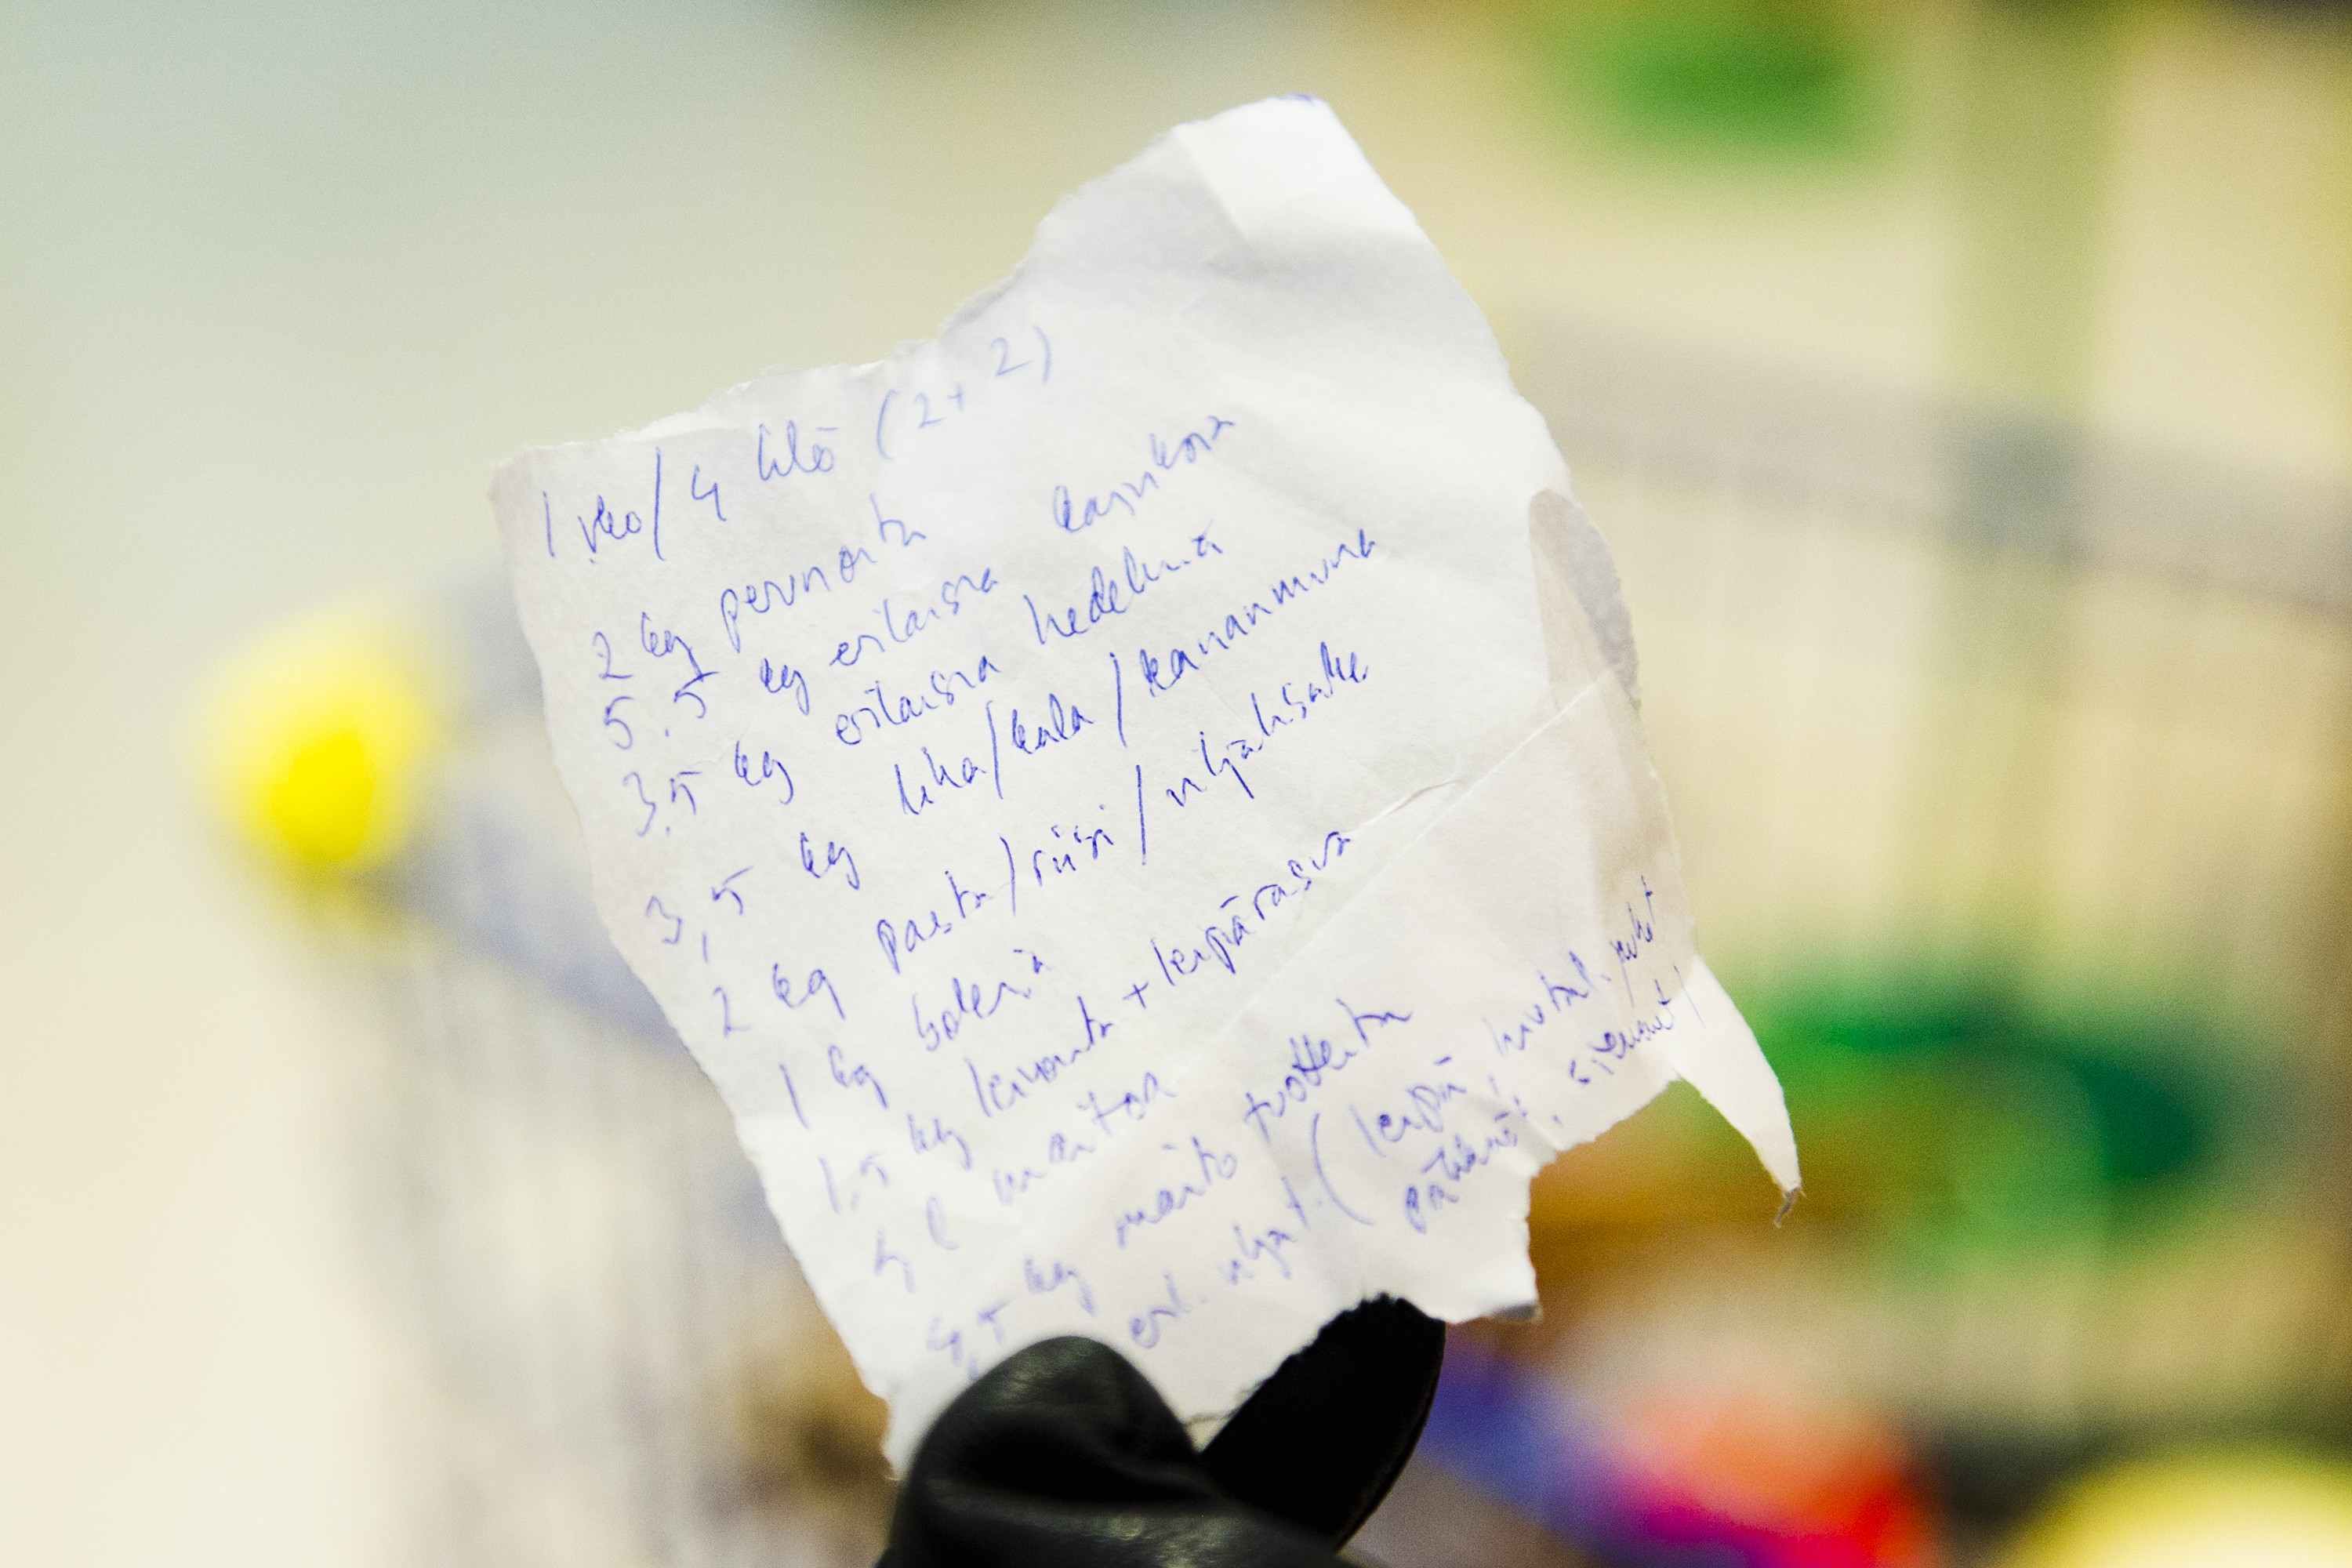 1 vko / 4 hlö (2+2)
2 kg perunoita
5.5 kg erilaisia kasviksia
3.5 kg erilaisia hedelmiä
3,5 kg liha/kala/kananmuna
2 kg pasta/riisi/viljalisäke
1 kg
1.5 kg leivontaa + leipärasva
4 l maitoa
kg maitotuotteita
eril. viljat. (leipä,
pähkinöt, siemenet)